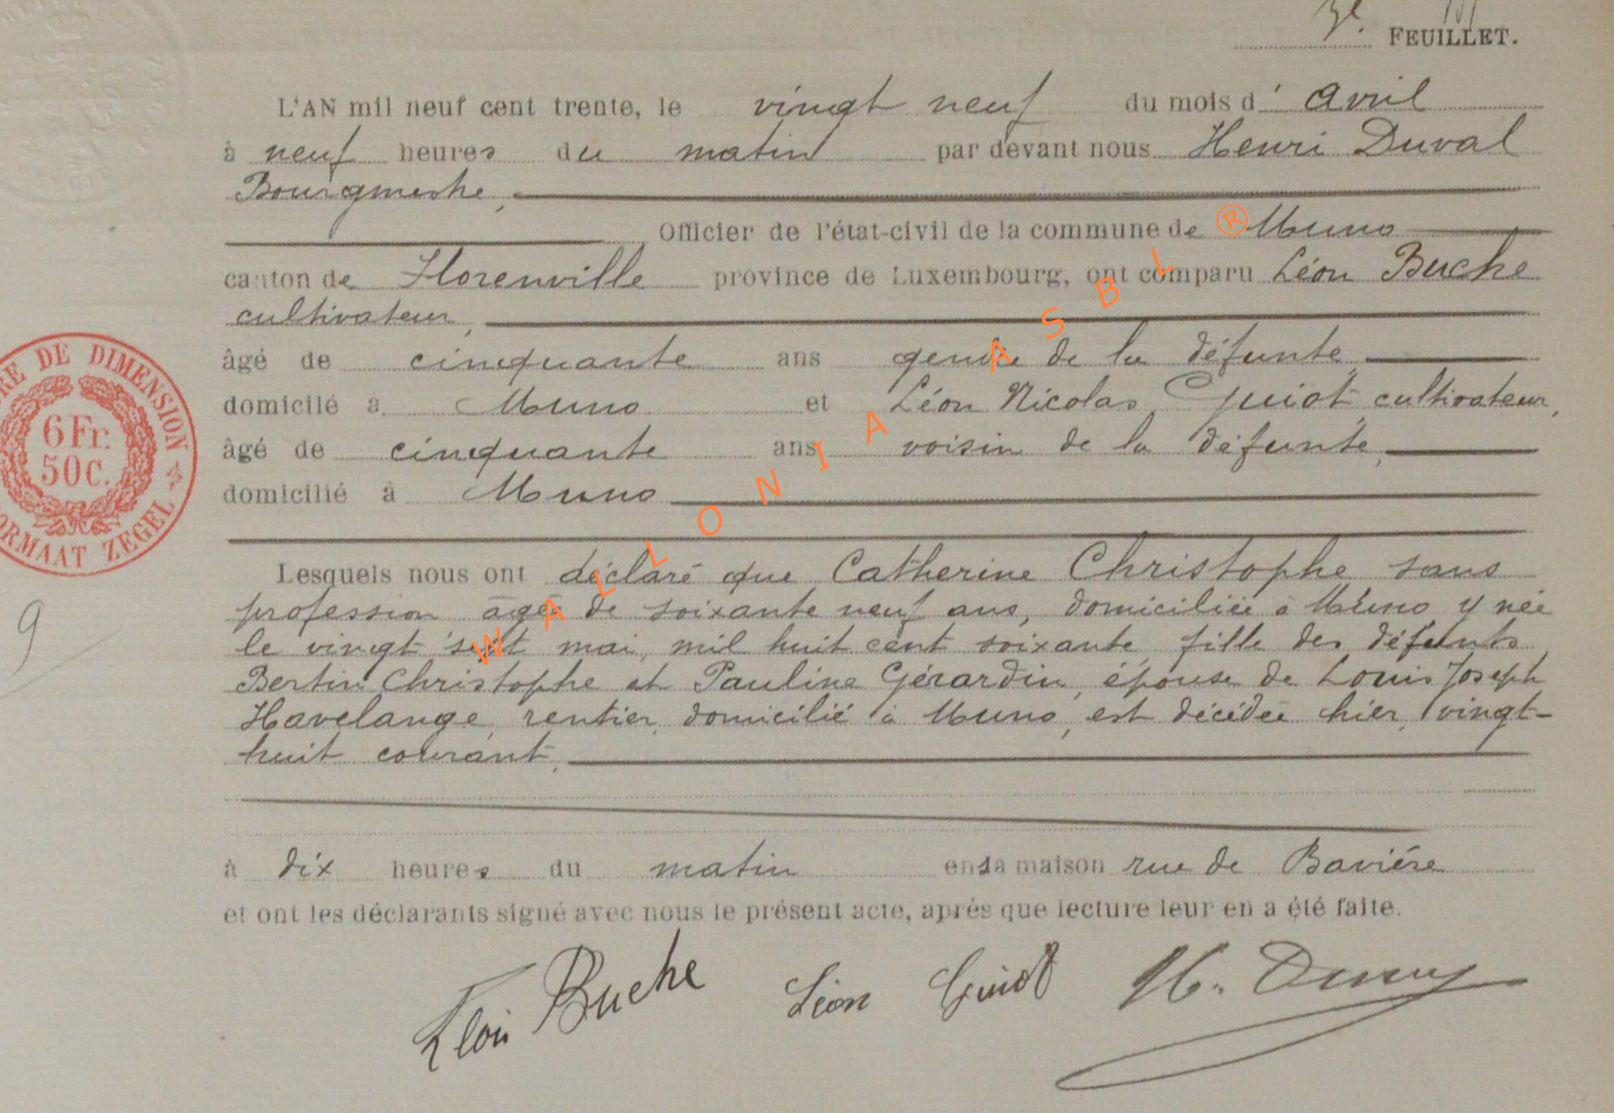 3e FEUILLET.
L'AN mil neuf cent trente, le vingt neuf du mois d' Avril
à neuf heures du matin par devant nous Henri Duval
Bourgmestre,
Officier de l'état-civil de la commune de ® Muno
canton de Florenville province de Luxembourg, ont comparu Léon Buche
cultivateur,
âgé de cinquante ans gendre de la défunte,
domicilé à Muno et Léon Nicolas Guiot, cultivateur,
âgé de cinquante ans voisin de la défunte,
domicilié à Muno
Lesquels nous ont déclaré que Catherine Christophe sans
profession âgée de soixante neuf ans, domiciliée à Muno y née
le vingt sept mai, mil huit cent soixante, fille des défunts
Bertin Christophe et Pauline Gérardin, épouse de Louis Joseph
Havelange, rentier, domicilié à Muno, est décédée hier, vingt-
huit courant,
à dix heures du matin en sa maison rue de Baviére
et ont les déclarants signé avec nous le présent acte, après que lecture leur en a été faite.
Buche Léon Guiot H. Duval
DE DIMENSION
6Fr.
50C.
ZEGEL
9
WALLONIA ASBL